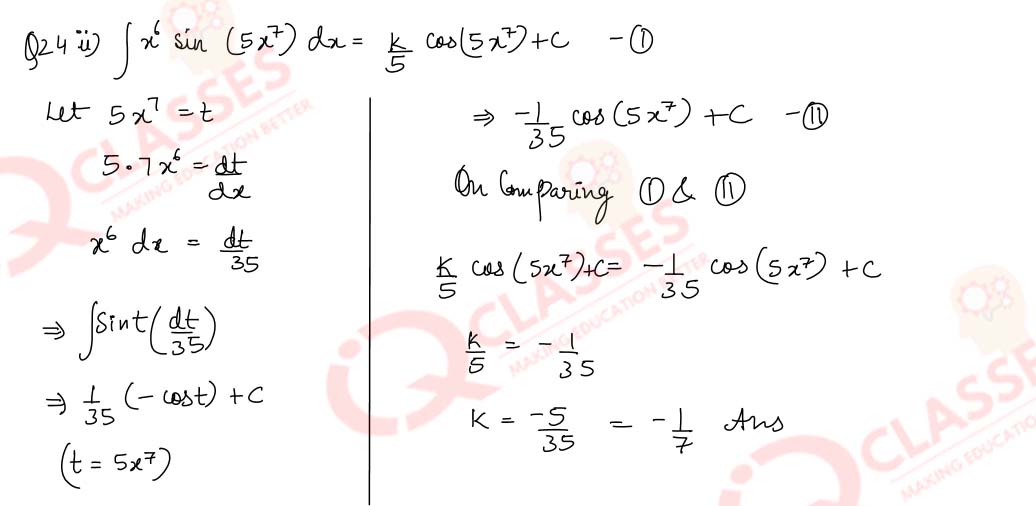 Q24 ii) ∫ x⁶ sin (5x⁷) dx = k/5 cos(5x⁷)+C - ①
Let 5x⁷ = t
5·7x⁶ = dt/dx
x⁶ dx = dt/35
⇒ ∫Sint(dt/35)
⇒ 1/35 (-cost) + C
(t = 5x⁷)
⇒ -1/35 cos(5x⁷) + C - ⑪
On Comparing ① & ⑪
k/5 cos(5x⁷)+C = -1/35 cos(5x⁷) + C
k/5 = -1/35
K = -5/35 = -1/7 Ans
CLASSES
MAKING EDUCATION BETTER
CLASSES
MAKING EDUCATION BETTER
CLASSES
MAKING EDUCATION